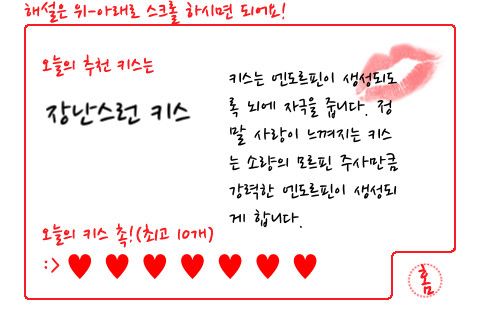 해설은 위-아래로 스크롤 하시면 되어요!
오늘의 추천 키스는
장난스런 키스
키스는 엔도르핀이 생성되도
록 뇌에 자극을 줍니다. 정
말 사랑이 느껴지는 키스
는 소량의 모르핀 주사만큼
강력한 엔도르핀이 생성되
게 합니다.
오늘의 키스 촉!(최고 10개)
:> ♥ ♥ ♥ ♥ ♥ ♥ ♥
홈